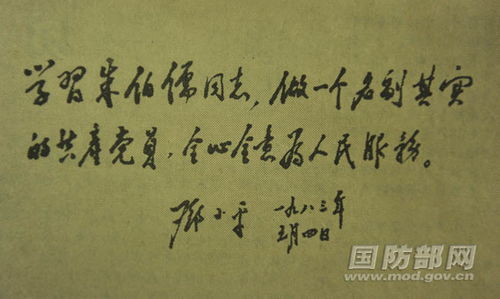 学習朱伯儒同志，做一个名副其实
的共產党員，全心全意為人民服務。
鄧小平 一九八三年
三月四日
国防部网
www.mod.gov.cn